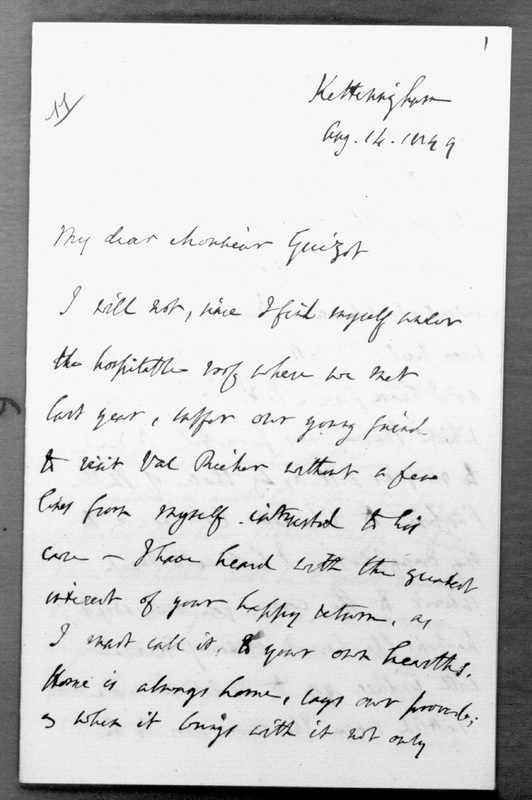 1
11
Ketteringham
Aug. 14. 1849
My dear Monsieur Guizot
I will not, since I find myself under
the hospitable roof where we met
last year, suffer our young friend
to visit Val Richer without a few
lines from myself intrusted to his
care – I have heard with the greatest
interest of your happy return, as
I must call it, to your own hearths.
Home is always home, says our proverb;
& when it brings with it not only